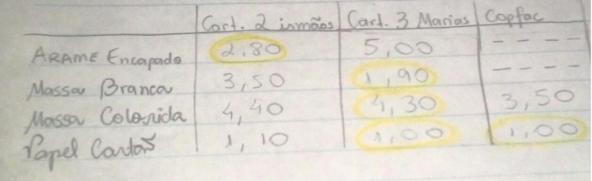 Cart. 2 irmãos Cart. 3 Marias Copfac
ARAME Encapado 2,80 5,00 - - - -
Massa Branca 3,50 1,90 - - - -
Massa Colorida 4,40 4,30 3,50
Papel Cartão 1,10 1,00 1,00